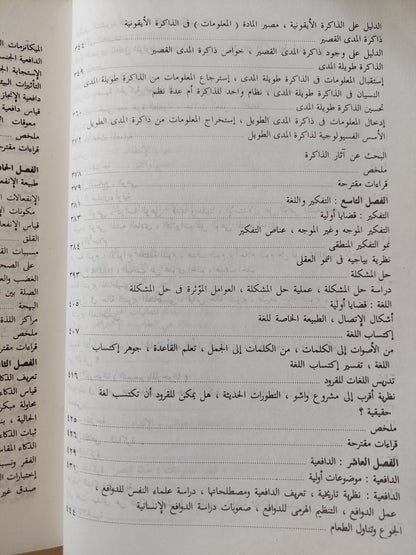 الدليل على الذاكرة الأيقونية ، مصير المادة ( المعلومات ) فى الذاكرة الأيقونية
ذاكرة المدى القصير ٣٤٤
الدليل على وجود ذاكرة المدى القصير ، خواص ذاكرة المدى القصير
الذاكرة طويلة المدى ٣٤٩
إستقبال المعلومات فى الذاكرة طويلة المدى ، إسترجاع المعلومات من الذاكرة طويلة المدى
النسيان فى الذاكرة طويلة المدى ، نظام واحد للذاكرة أم عدة نظم
تحسين الذاكرة طويلة المدى ٣٦٠
إدخال المعلومات فى ذاكرة المدى الطويل ، إستخراج المعلومات من ذاكرة المدى الطويل
الأسس الفسيولوجية لذاكرة المدى الطويل ٣٧٢
البحث عن آثار الذاكرة
ملخص ٣٧٨
قراءات مقترحة ٣٧٩
الفصل التاسع : التفكير واللغة ٣٨١
التفكير : قضايا أولية ٣٨٣
التفكير الموجه وغير الموجه ، عناصر التفكير
نمو التفكير المنطقى
نظرية بياجيه فى النمو العقلى
حل المشكلة ٣٩٣
دراسة حل المشكلة ، عملية حل المشكلة ، العوامل المؤثرة فى حل المشكلة
اللغة : قضايا أولية ٤٠٥
أشكال الإتصال ، الطبيعة الخاصة للغة
إكتساب اللغة ٤٠٧
من الأصوات إلى الكلمات ، من الكلمات إلى الجمل ، تعلم القاعدة ، جوهر إكتساب
اللغة ، تفسير إكتساب اللغة
تدريس اللغات للقرود ٤١٦
نظرة أقرب إلى مشروع واشو ، التطورات الحديثة ، هل يمكن للقرود أن تكتسب لغة
حقيقية ؟
ملخص ٤٢٥
قراءات مقترحة
الفصل العاشر : الدافعية ٤٢٩
الدافعية : موضوعات أولية ٤٣١
الدافعية : نظرية تاريخية ، تعريف الدافعية ومصطلحاتها ، دراسة علماء النفس للدوافع ،
عمل الدوافع ، التنظيم الهرمى للدوافع ، صعوبات دراسة الدوافع الإنسانية
الجوع وتناول الطعام ٤٤٤
الميكانزمات
الدافعية الجنس
الاستجابة الج
التأثيرات البيئ
دافعية الإنجاز
قياس دافعية
معوقات ال
ملخص
قراءات مقترحة
الفصل الحاد
طبيعة الإنفعال
الإنفعالات ا
مكونات الإ
قياس الإنفعا
القلق
مسببات القلق
على الصحة
الغضب والع
الصلة بين
البهجة
مراكز اللذة
ملخص
قراءات مقترح
الفصل الثان
تعريف الذكاء
قياس الذكاء
محاولة مبكر
الحالية ، بنا
ثبات الذكاء
الذكاء المقا
الفقر ونسب
إختبارات ال
صدق غير